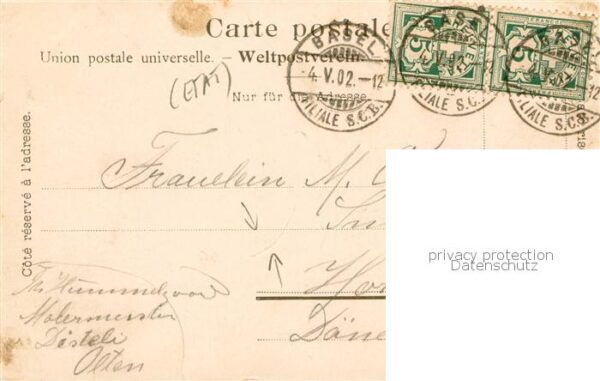 Carte postale
Union postale universelle. – Weltpostverein.
BASEL
4. V. 02. – 12
FILIALE S.C.B.
BASEL
V. 02
FILIALE S.C.B.
(ETAT)
Nur für die Adresse
Côté réservé à l'adresse.
FRANCO
5
5
Fraeulein M.
privacy protection
Datenschutz
Malermeister
Disteli
Olten
Däne